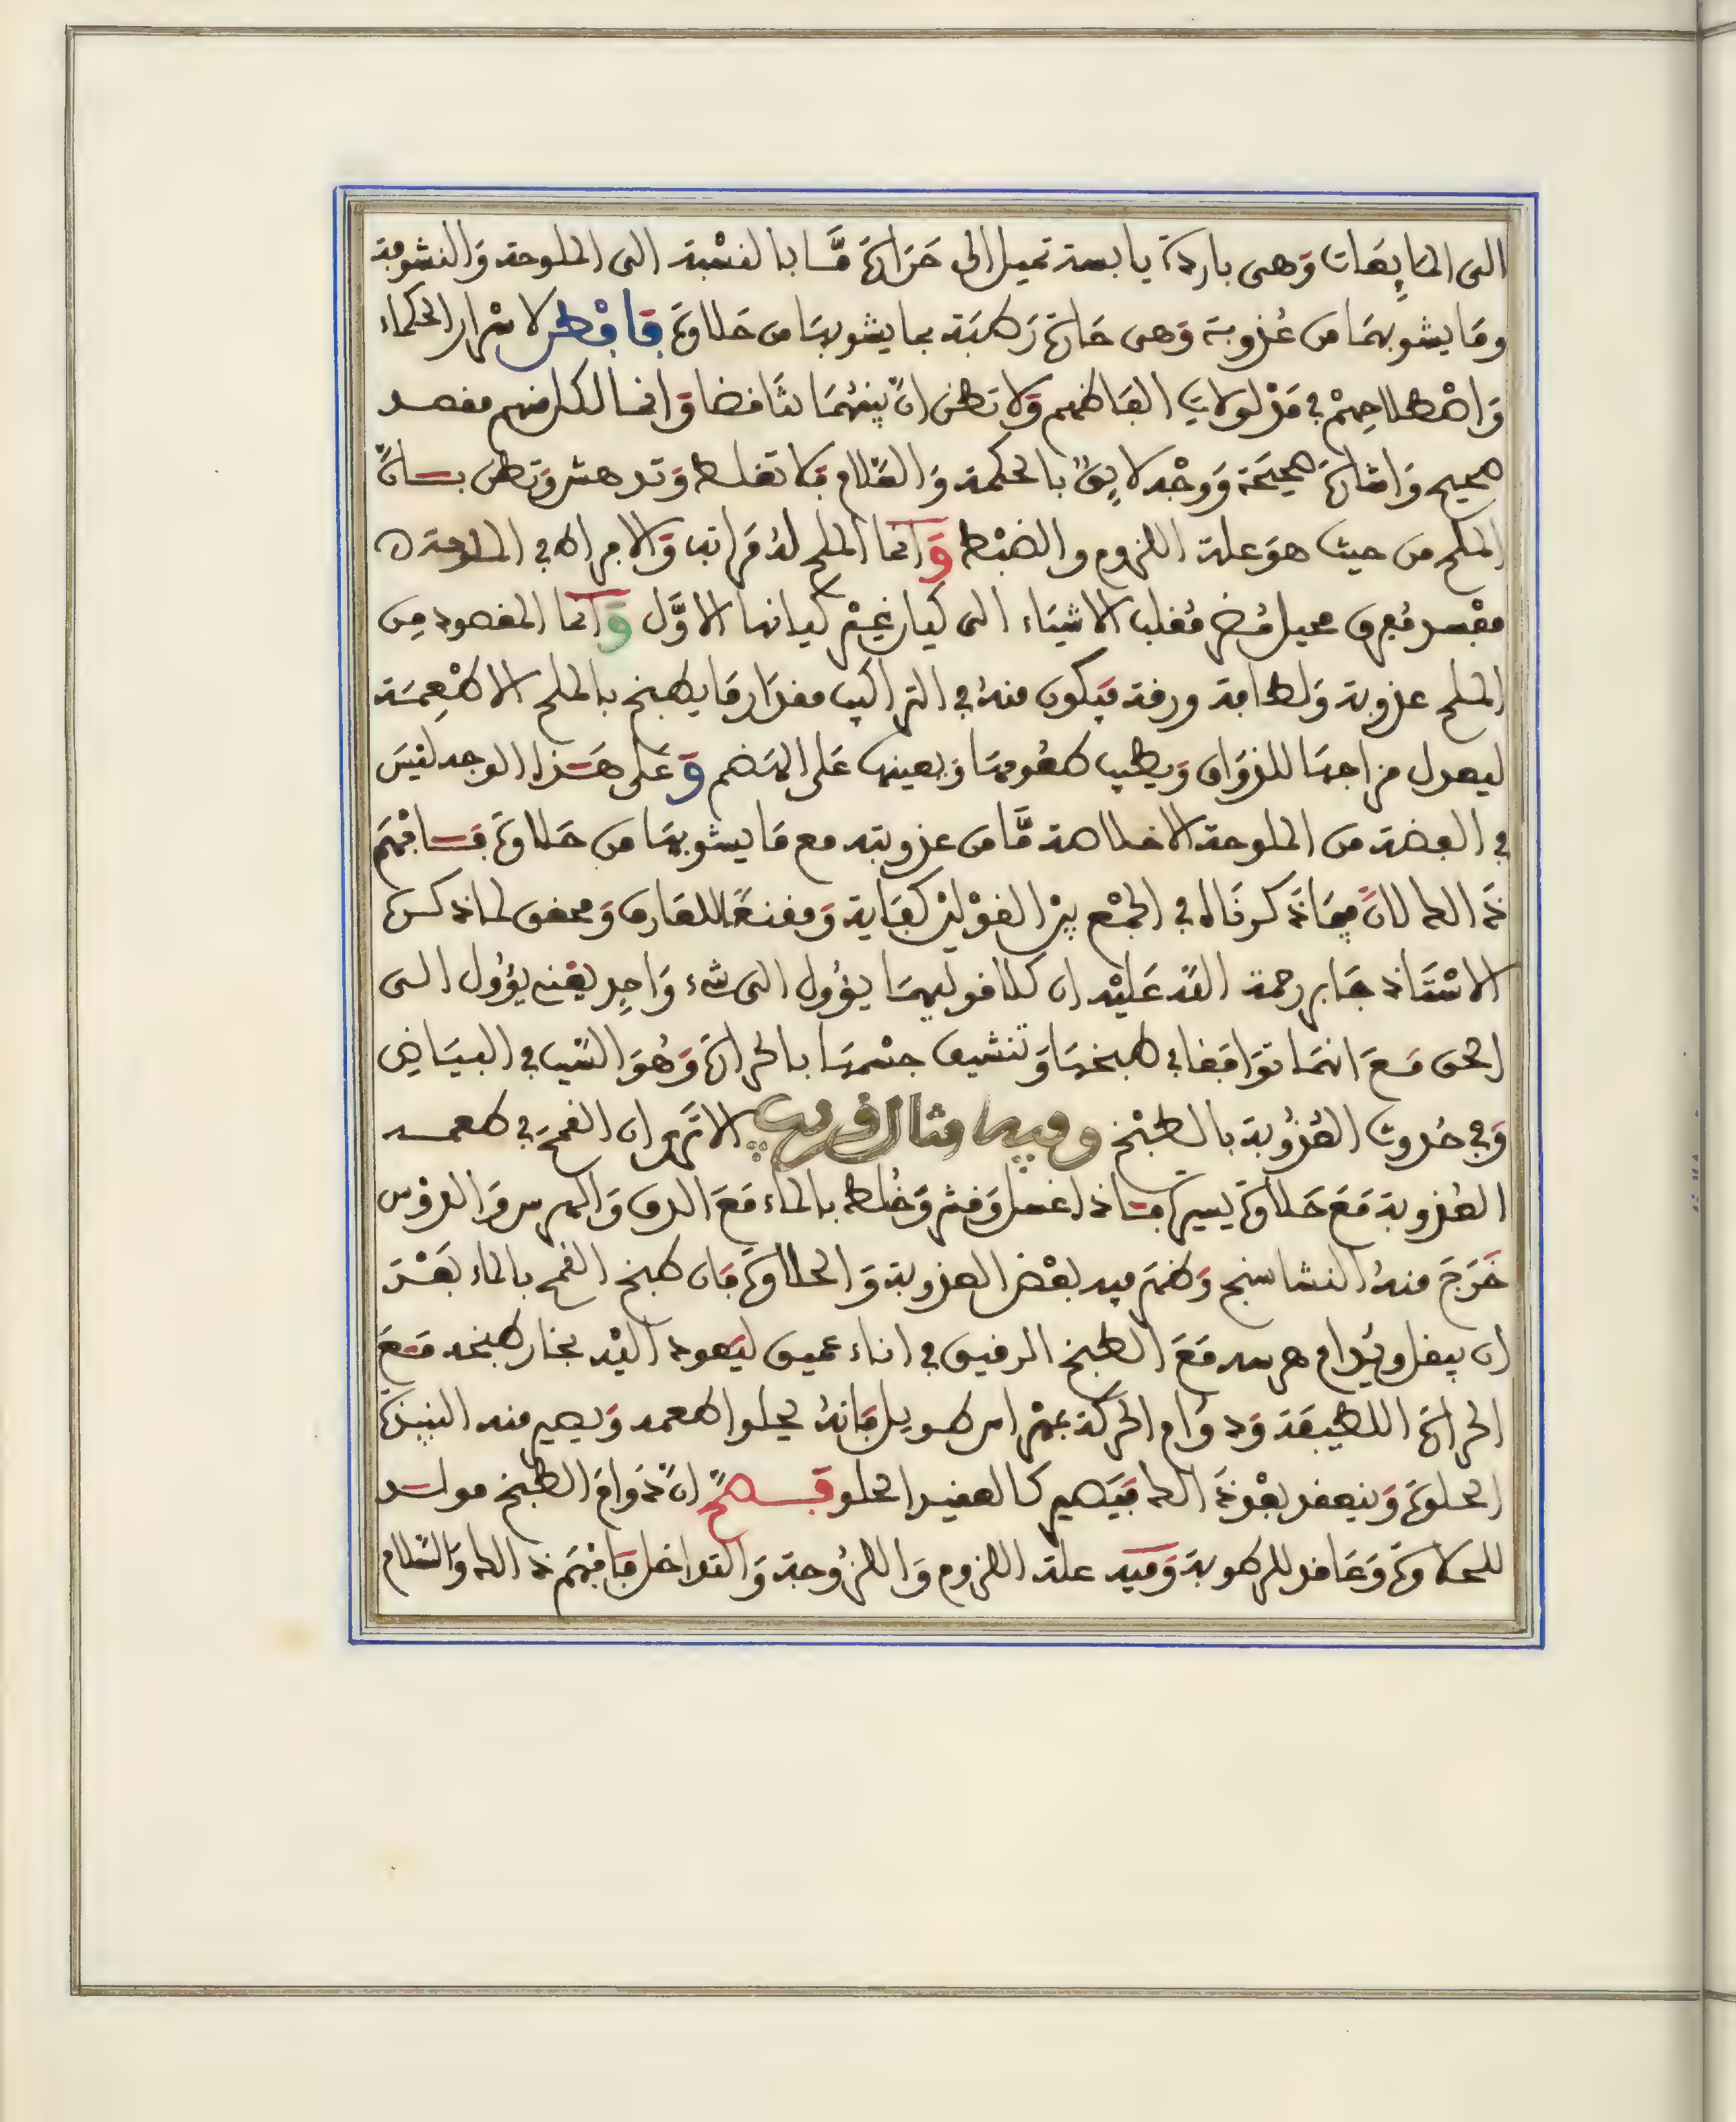 الى المايعات وَهى باردة يابسة تميل الى حَرَارَة مَّا بالنسْبة الى الملوحة وَالنشوفة
ومَا يشوبهمَا من عُذوبة وَهى حَارة رَطبَة بما يشوبهَا من حَلاوة فافْطن لاسْرار الحكماء
وَاصْطلاحِهمْ في مَدْلولات الفَاظهم وَلا تظن انّ بينهُمَا تنَاقضا وَانما لكل منهم مقصد
صحيح وَاشَارَة صَحيحَة وَوجْه لايق بالحكمة وَالسَّلام فلا تغلط وَتدهش وَتظن بان
الملح من حيث هوَ علة اللزوم والضبْط وَانما الملح لهُ مَراتب وَالافراط في الملوحة
مفْسد مُحرق محيل مُضر مُقلب الاشيَاء الى كيان غيْر كيانها الاوَّل وَانما المقصود مِن
الملح عذوبة وَلطافة ورقة فيَكون منهُ في التراكيب مقدَار مَا يطبخ بالملح الاطْعِمَة
ليعدل مزاجهَا للذوَاق وَيطيب طعُومهَا وَيعينهَا عَلى الهَضم وَعَلى هَذا الوجه ليْسَ
في الفضة من الملوحة الا خلاصة مَّا من عذوبته مع مَا يشوبهَا من حَلاوة فافْهَم
ذَالك لانَّ فيمَا ذَكرنَاه في الجمْع بيْن القوْليْن كفَاية وَمقنعًا للعَارف وَمحقق لما ذكره
الاسْتَاذ جَابر رحمة اللّه عَليْه ان كلا قوليهمَا يؤول الى شىء وَاحِد يعْني يؤول الى
الحق مَعَ انهمَا توَافقا في طبخهَا وَتنشيف جسْمهَا بالحرارة وَهُوَ السَّبب في البيَاض
وَفي حُدوث العُذُوبة بالطبْخ وفيها مثال قريب الا تَرى ان القمحَ في طعمه
العُذوبة مَعَ حَلاوة يسيرة فاذا غسل وَقشر وَخُلط بالماء مَعَ الدق وَالهرس وَالدرْس
خَرَجَ منهُ النشاستج وَظهَر فيه بعْض العذوبة وَالحلاوة فان طبخ القمح بالماء بَعْدَ
ان يبقل ويُدام هرسه مَعَ الطبخ الرفيق في اناء عميق ليَعود اليْه بخار طبخه مَعَ
الحرارة اللطيفَة وَدوَام الحركة بمهْراس طويل فَانهُ يحلوا طعمه وَيصير منه النبيذة
الحلوة وَينعقد بعْد ذَالك فيَصير كالعقيد الحلو فصَحَّ انَّ دَوامَ الطبخ مولد
للحلاوة وَعَاقد للرطوبة وَفيه علة اللزوم وَاللزُوجة وَالتداخل فافْهَم ذَالك وَالسَّلام